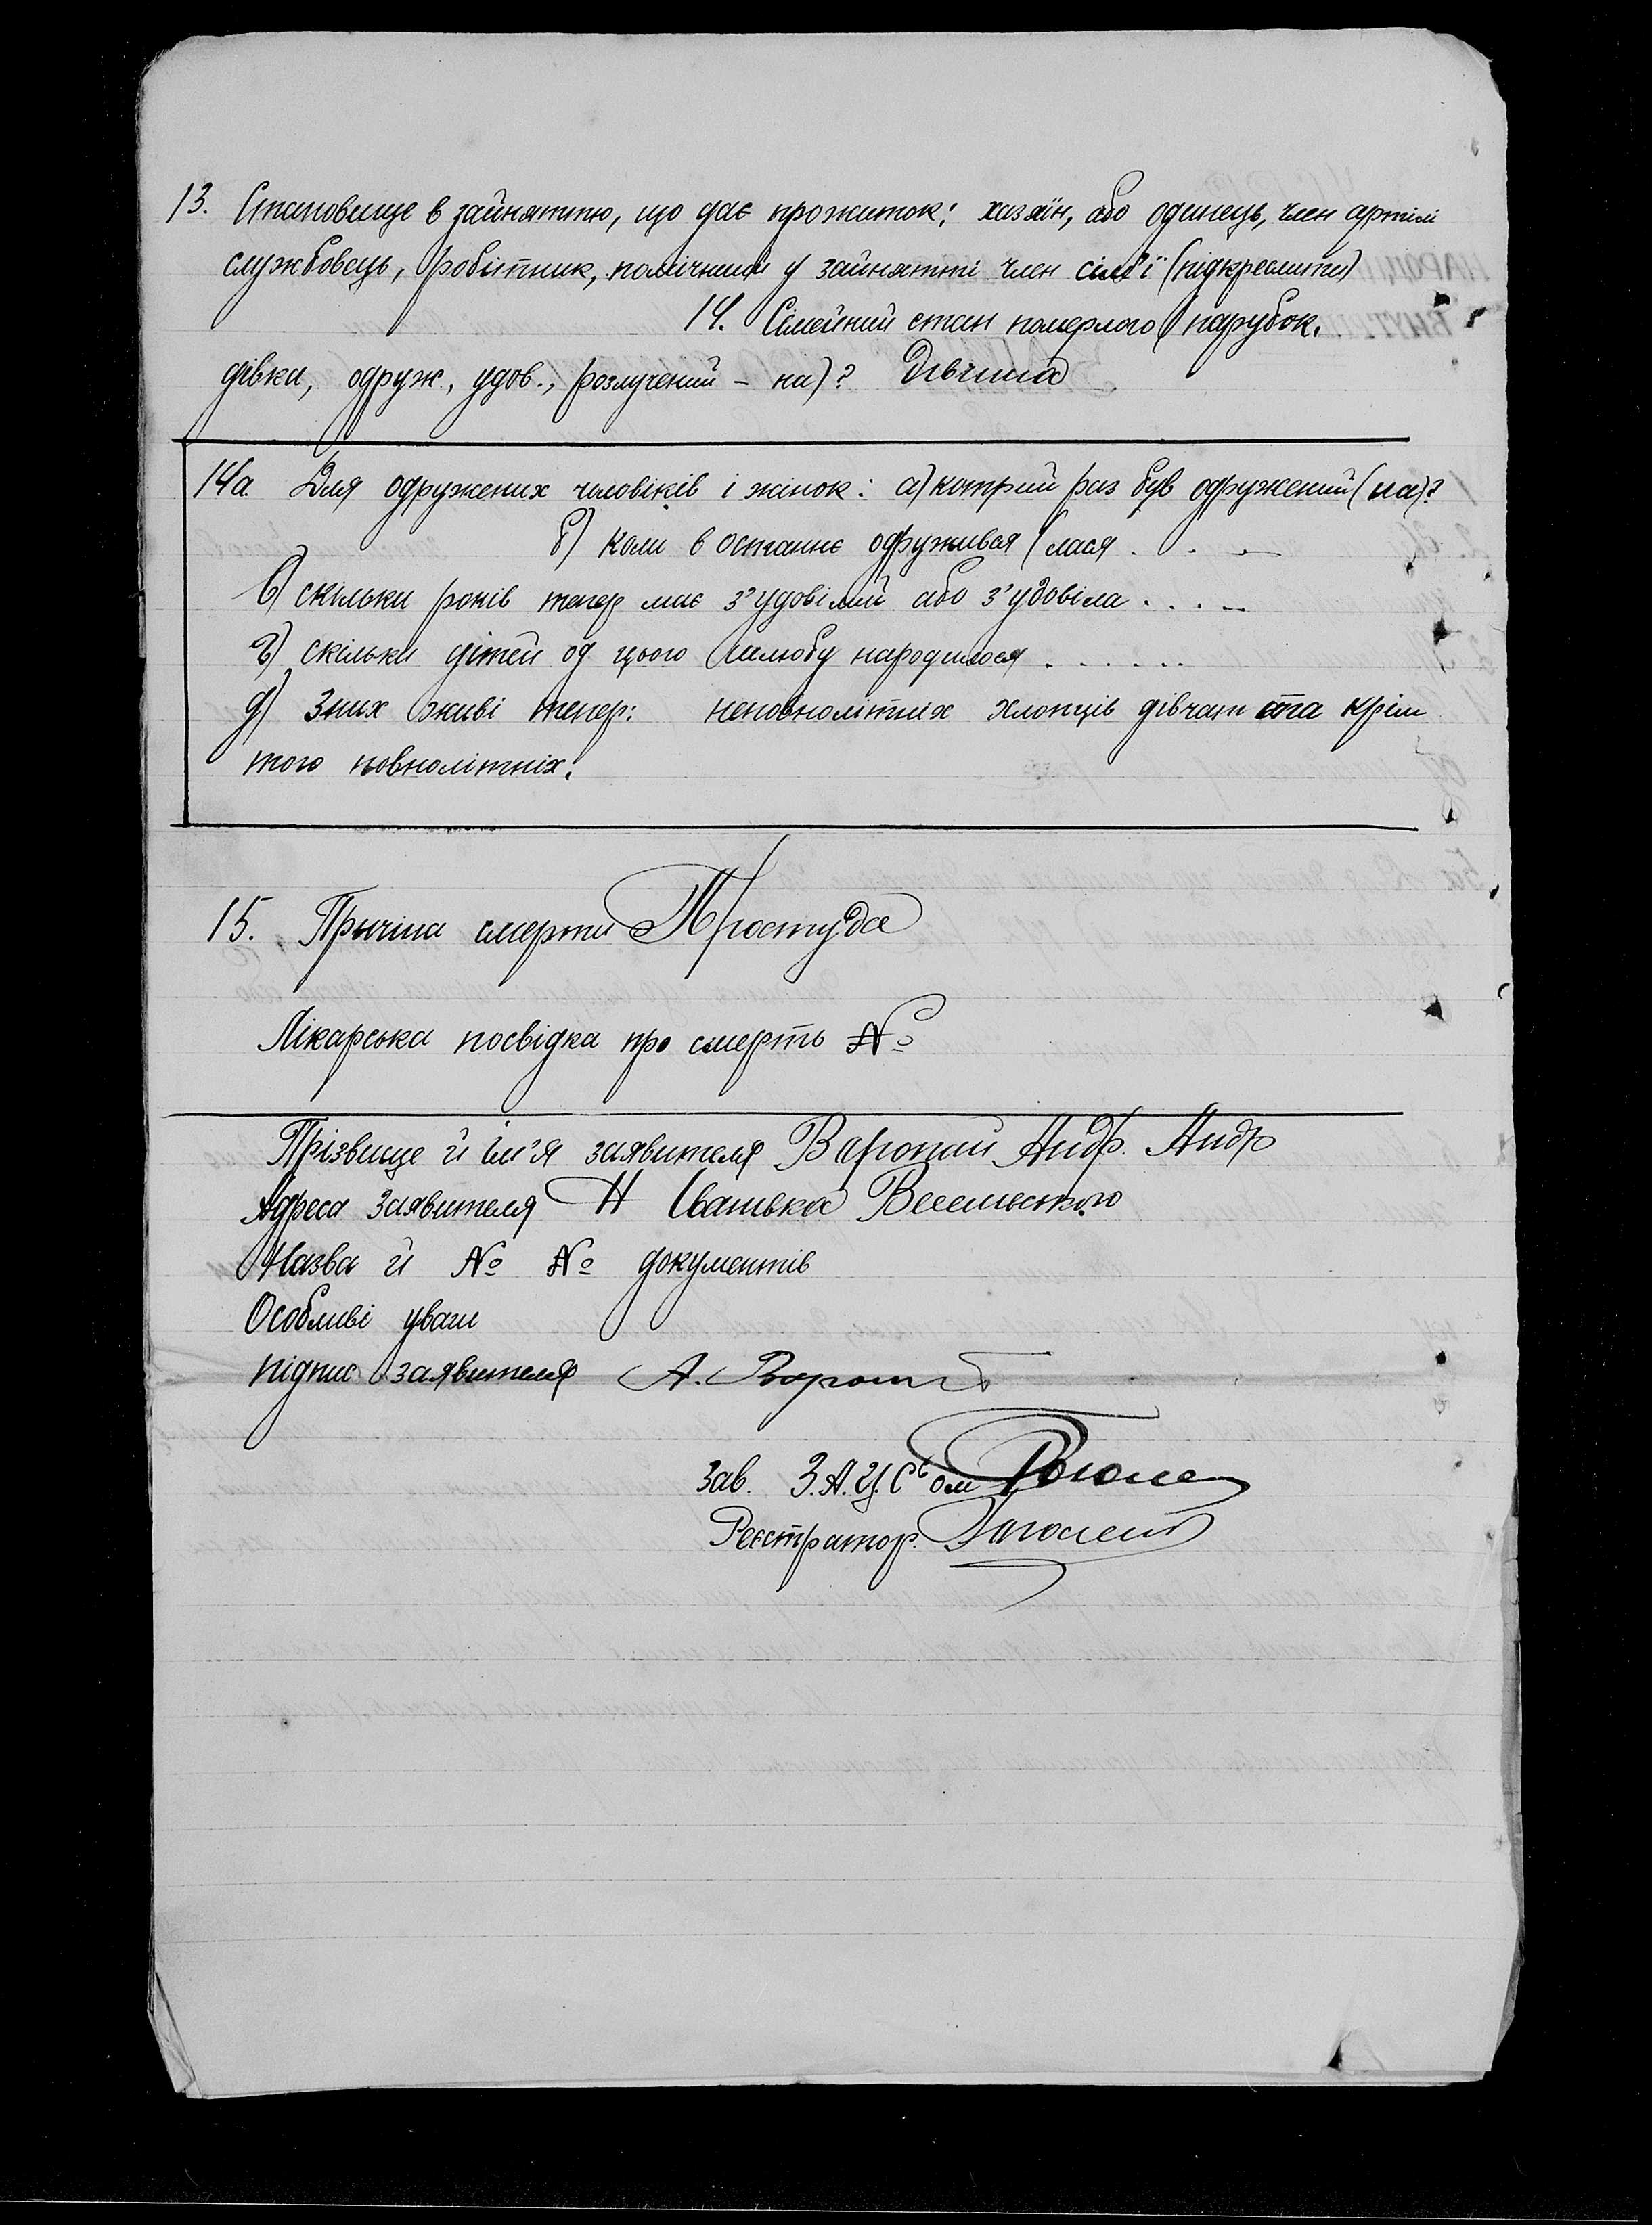 13. Становище в зайняттю, що дає прожиток: хазяїн, або одинець, член артілі
службовець, робітник, помічний у зайнятті член сімї (підкреслити)
14. Сімейний стан померлого (парубок.
дівка, одруж., удов., розлучений - на)? Дівчина
14а Для одружених чоловіків і жінок: а) котрий раз був одружений (на)?
б) коли в останнє одружився (лася . . .
в) скільки років тепер має з'удовілий або з'удовіла . . . .
г) скільки дітей од цього шлюбу народилося . . . . . .
д) Зних живі тепер: неповнолітніх хлопців дівчат та крім
того повнолітніх.
15. Причина смерти Простуда
Лікарська посвідка про смерть №
Прізвище й ім'я заявителя Вороний Андр. Андр
Адреса заявителя Н Іванівка Весельского
Назва й № № документів
Особливі уваги
підпис заявителя А.
Зав. З.А.Ц.С'ом
Реєстратор.